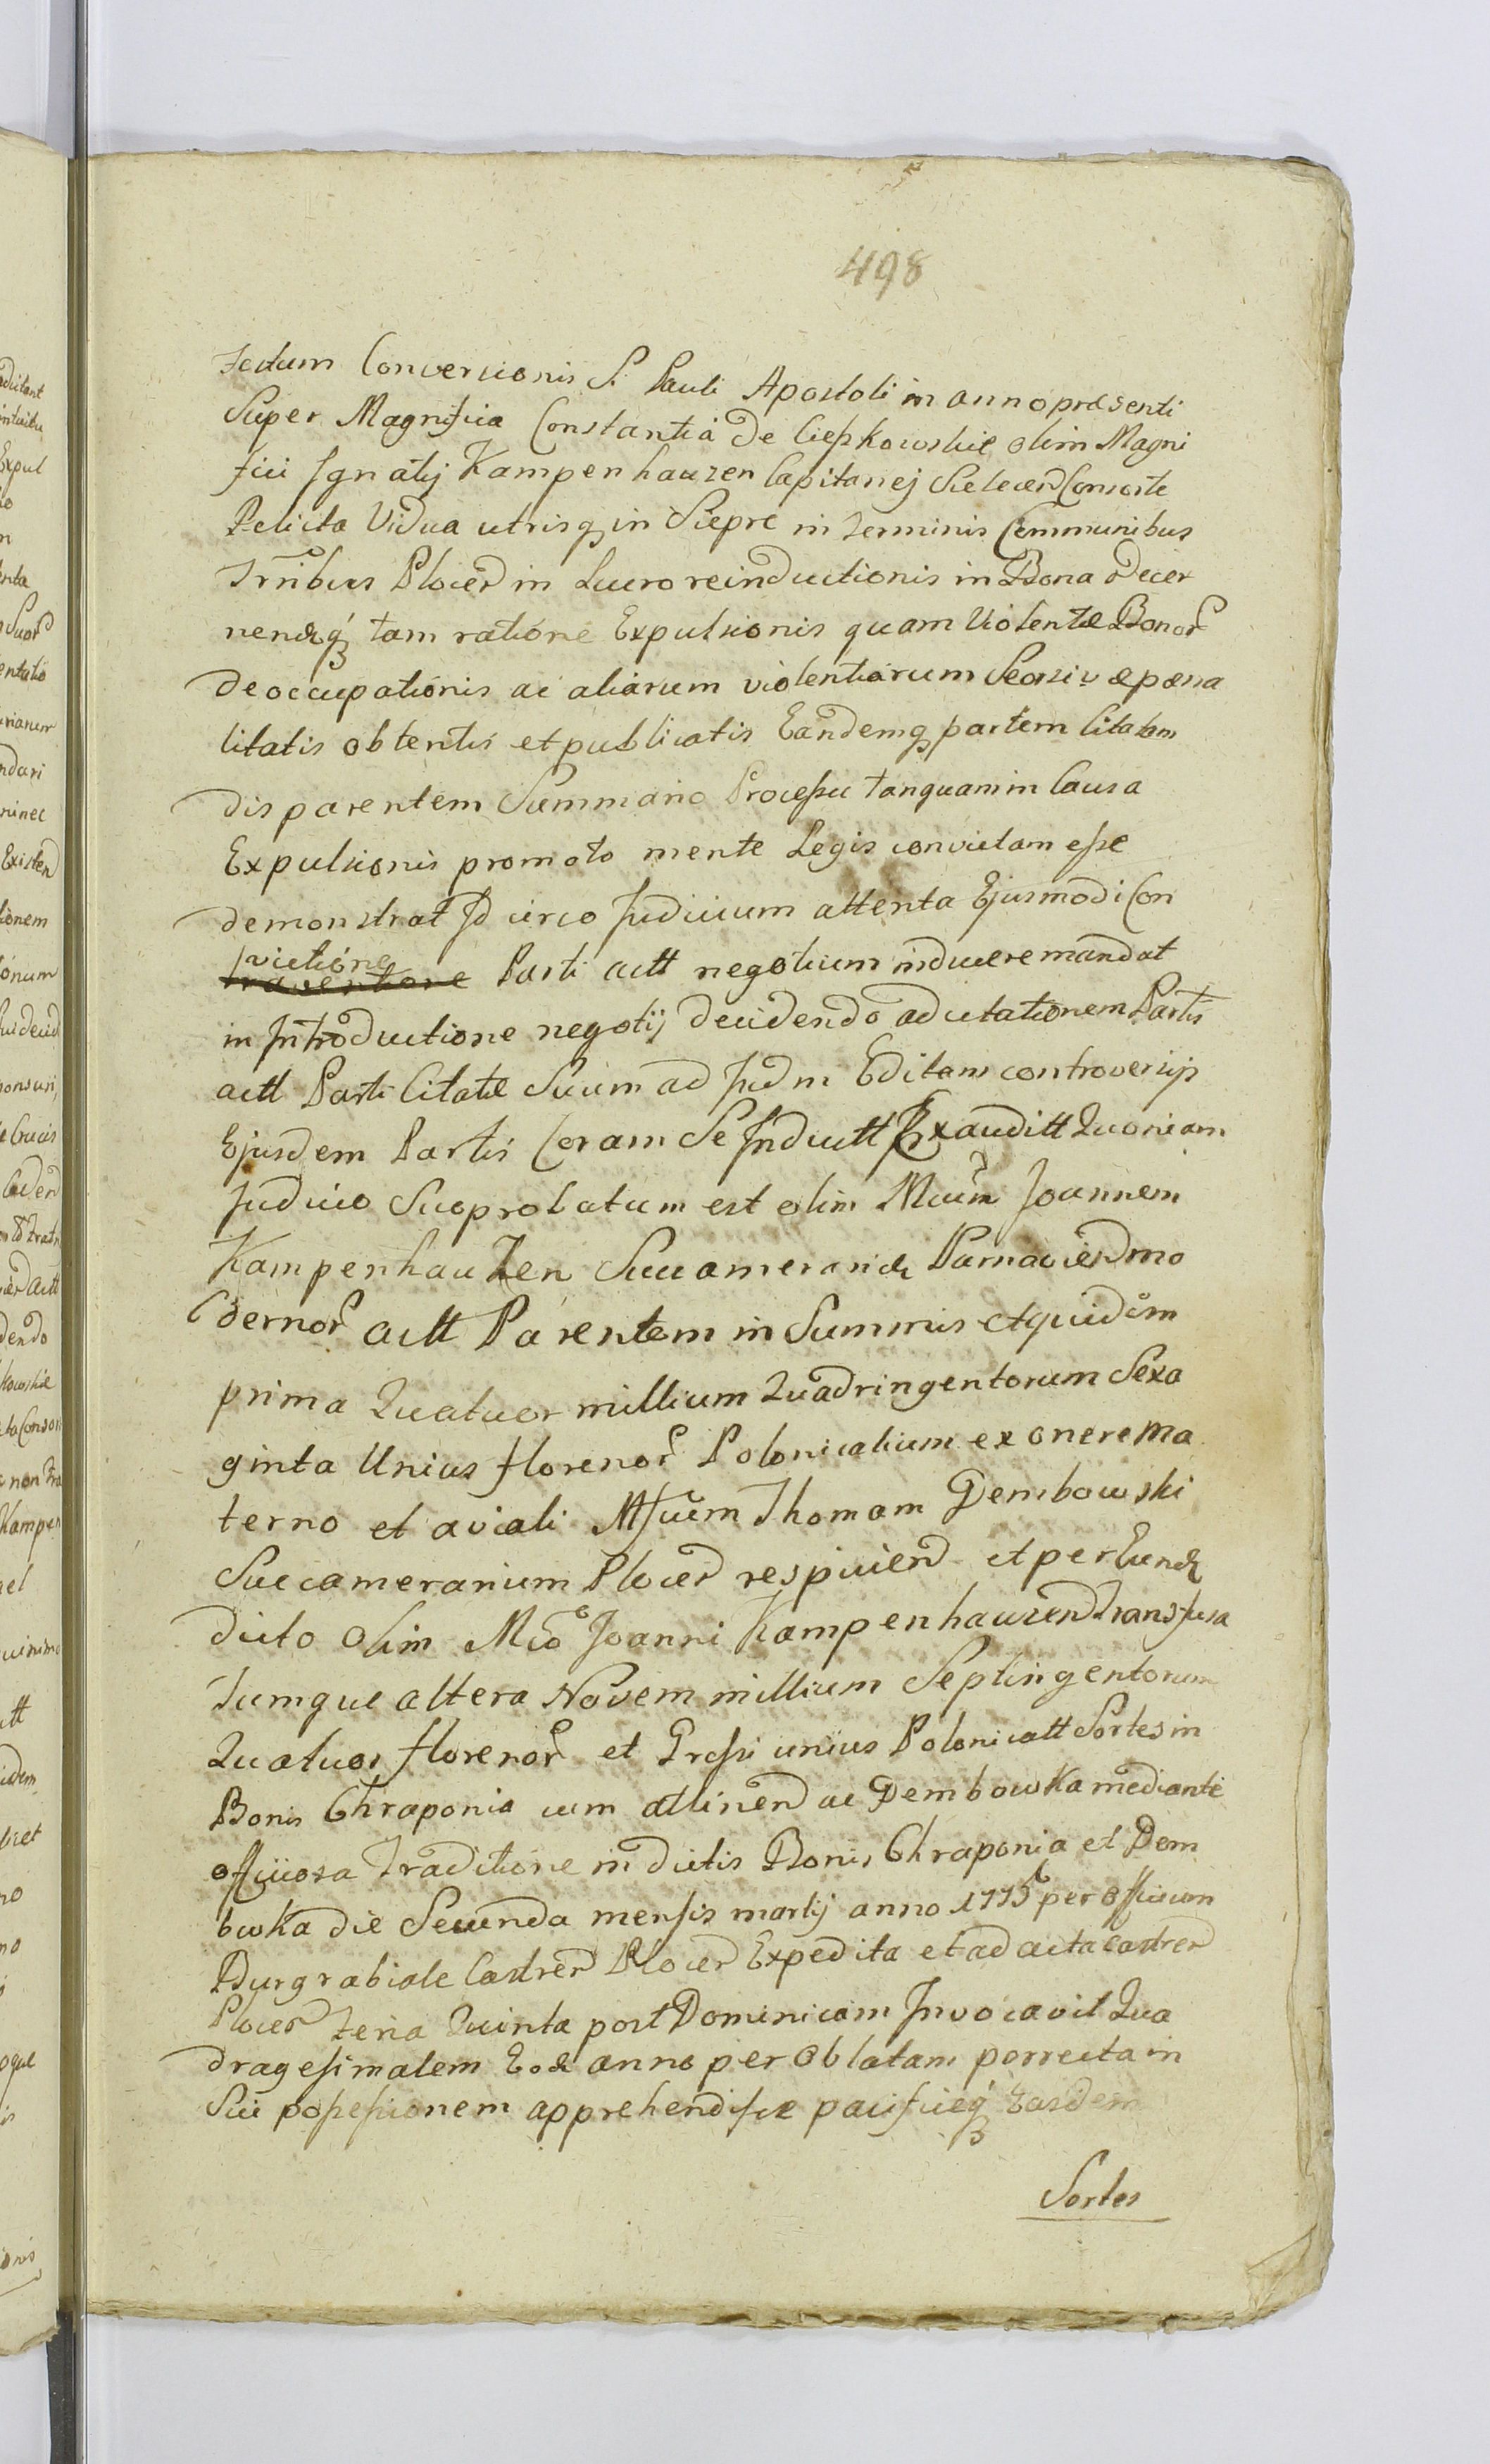 498
Festum Conversionis S. Pauli Apostoli in anno præsenti
Super Magnifica Constantia de Ciepkowskie olim Magni
fici Ignatij Kampenhauzen Capitanej Sielecen Consorte
Relicta Vidua utrisq in Siepre in Terminis Communibus
Trnibus Plocen in Lucro reinductionis in Bona decer
nendæq tam ratione Expulsionis quam Violentæ Bonor
deoccupationis ac aliarum violentiarum Seorsivæ pæna
litatis obtentis et publicatis Eandemq partem Citatam
disparentem Summario Processu tanquam in Causa
Expulsionis promoto mente Legis convictam esse
demonstrat Id circo Judicium attenta Ejusmodi Con
victione Parti actt negotium inducere mandat
in Introductione negotij decidendo ad citationem Partis
actt Parti Citatæ Suum ad Judm Editam controversijs
Ejusdem Partis Coram Se Inductt Exauditt Quoniam
Judicio Suo probatum est olim Mcum Joannem
Kampenhauzen Succamerarid Parnavien mo
dernor actt Parentem in Summis et quidem
prima Quatuor millium Quadringentorum Sexa
ginta Unius florenor Polonicalium ex onere Ma
terno et aviali Mfcum Thomam Dembowski
Succamerarium Plocen respicien et per Eund
dicto olim Mco Joanni Kampenhauzen Transfusa
Tumque altera Novem millium Septingentorum
Quatuor florenor et Grossi unius Polonicatt Sortes in
Bonis Chraponia cum attinen ac Dembowka mediante
officiosa Traditione in dictis Bonis Chraponia et Dem
bowka die Secunda mensis martij anno 1775 per officium
Burgrabiale Castren Plocen Expedita et ad acta Castren
Plocen Feria Quinta post Dominicam Invocavit Qua
dragesimalem Eod anno per Oblatam porrecta in
Sui possessionem apprehendisse pacificeq Easdem
Sortes